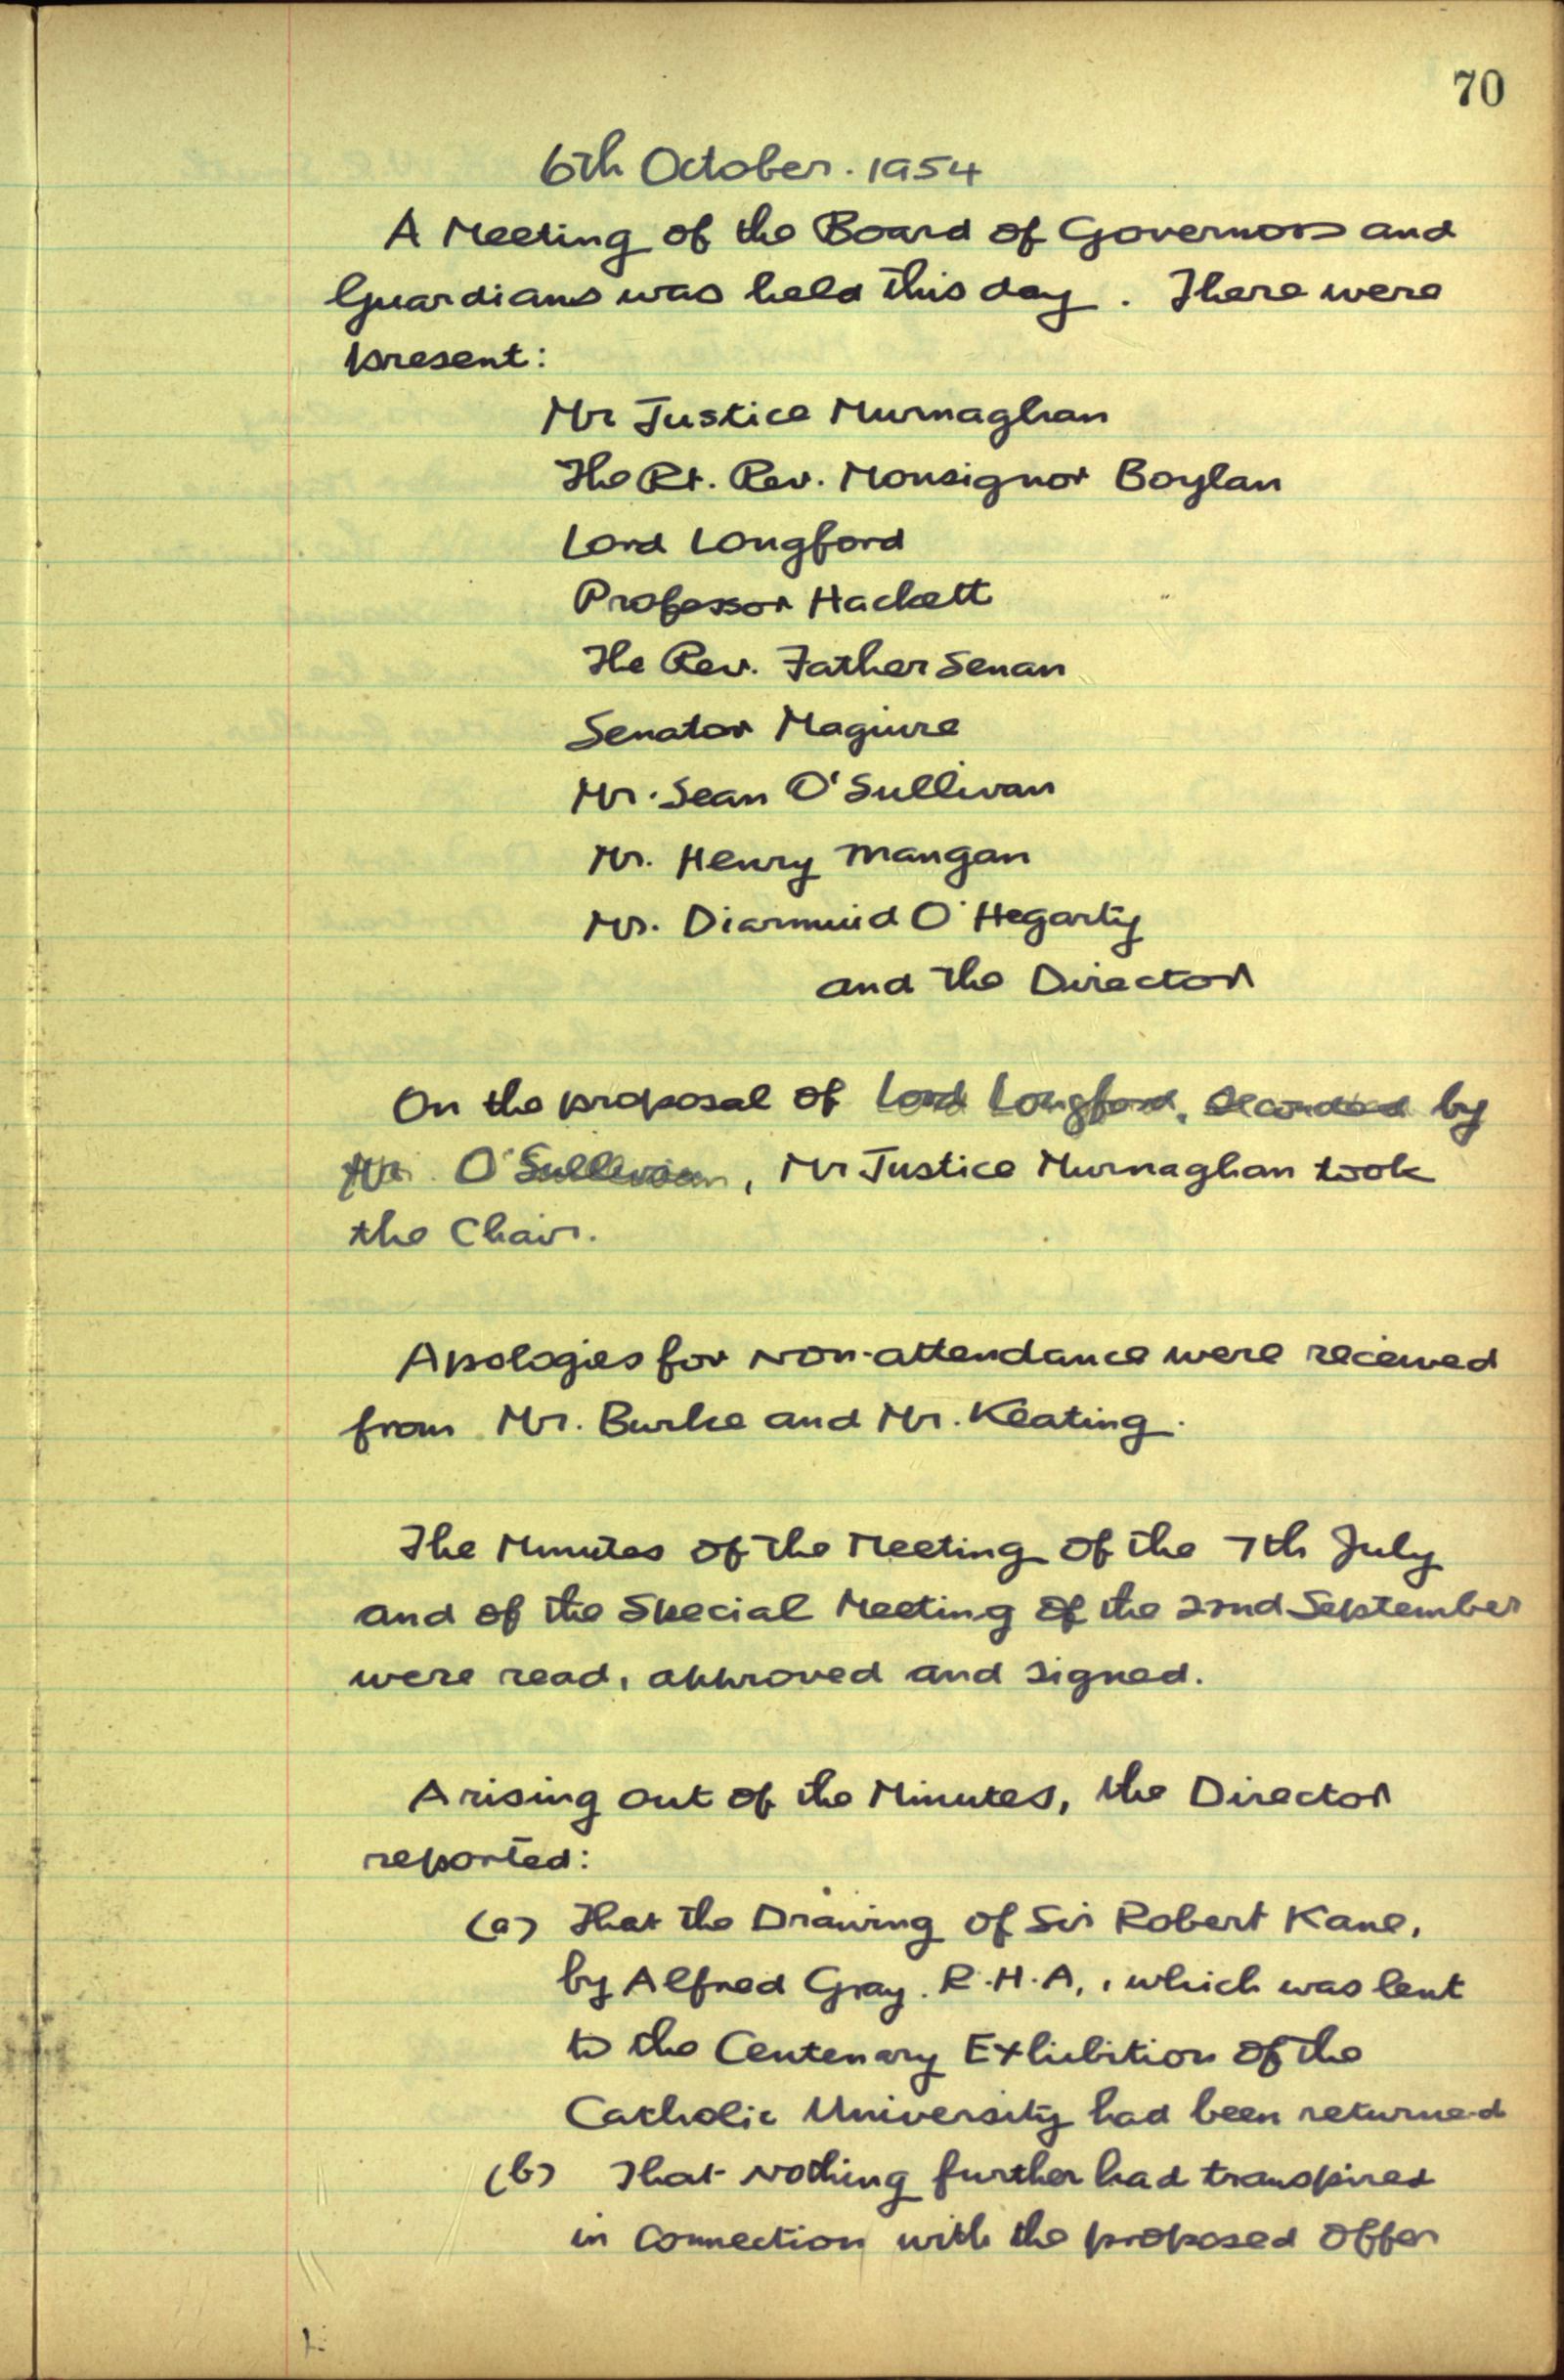 70
6th October. 1954
A Meeting of the Board of Governors and
Guardians was held this day. There were
present:
Mr Justice Murnaghan
The Rt. Rev. Monsignor Boylan
Lord Longford
Professor Hackett
The Rev. Father Senan
Senator Magiure
Mr. Sean O'Sullivan
Mr. Henry Mangan
Mr. Diarmuid O'Hegarty
and the Director
On the proposal of Lord Longford, seconded by
Mr. O'Sullivan, Mr Justice Murnaghan took
the Chair.
Apologies for non-attendance were received
from Mr. Burke and Mr. Keating.
The Minutes of the Meeting of the 7th July
and of the Special Meeting of the 22nd September
were read, approved and signed.
Arising out of the Minutes, the Director
reported:
(a) That the Drawing of Sir Robert Kane,
by Alfred Gray. R.H.A., which was lent
to the Centenary Exhibition of the
Catholic University had been returned
(b) That nothing further had transpired
in connection with the proposed offer